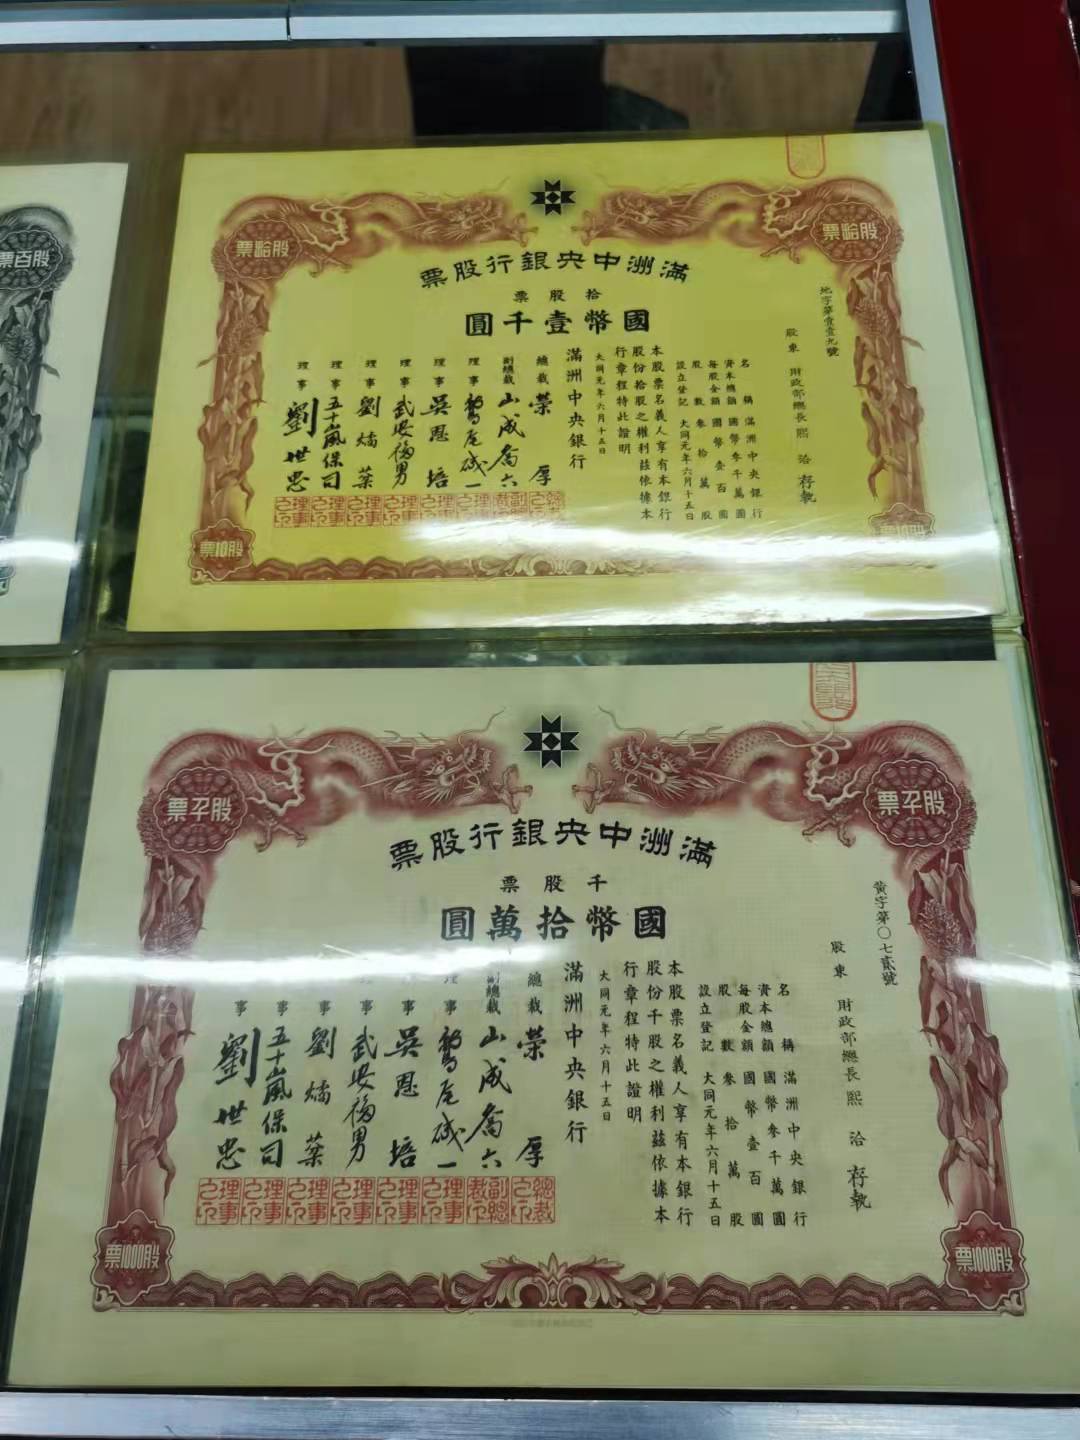 股百票
股拾票
股拾票
滿洲中央銀行股票
拾股票
國幣壹千圓
地字第壹壹九號
股東 財政部總長 熙洽 存執
名稱 滿洲中央銀行
資本總額 國幣參千萬圓
每股金額 國幣壹百圓
股數 參拾萬股
設立登記 大同元年六月十五日
本股票名義人享有本銀行
股份拾股之權利茲依據本
行章程特此證明
大同元年六月十五日
滿洲中央銀行
總裁 榮厚
副總裁 山成喬六
理事 鷲尾磯一
理事 吳恩培
理事 武安福男
理事 劉燏棻
理事 五十嵐保司
理事 劉世忠
總裁之印
副總裁之印
理事之印
理事之印
理事之印
理事之印
理事之印
理事之印
票10股
票10股
股千票
股千票
滿洲中央銀行股票
千股票
國幣拾萬圓
黃字第〇七貳號
股東 財政部總長 熙洽 存執
名稱 滿洲中央銀行
資本總額 國幣參千萬圓
每股金額 國幣壹百圓
股數 參拾萬股
設立登記 大同元年六月十五日
本股票名義人享有本銀行
股份千股之權利茲依據本
行章程特此證明
大同元年六月十五日
滿洲中央銀行
總裁 榮厚
副總裁 山成喬六
理事 鷲尾磯一
事 吳恩培
理事 武安福男
事 劉燏棻
事 五十嵐保司
事 劉世忠
總裁之印
副總裁之印
理事之印
理事之印
理事之印
理事之印
理事之印
理事之印
票1000股
票1000股